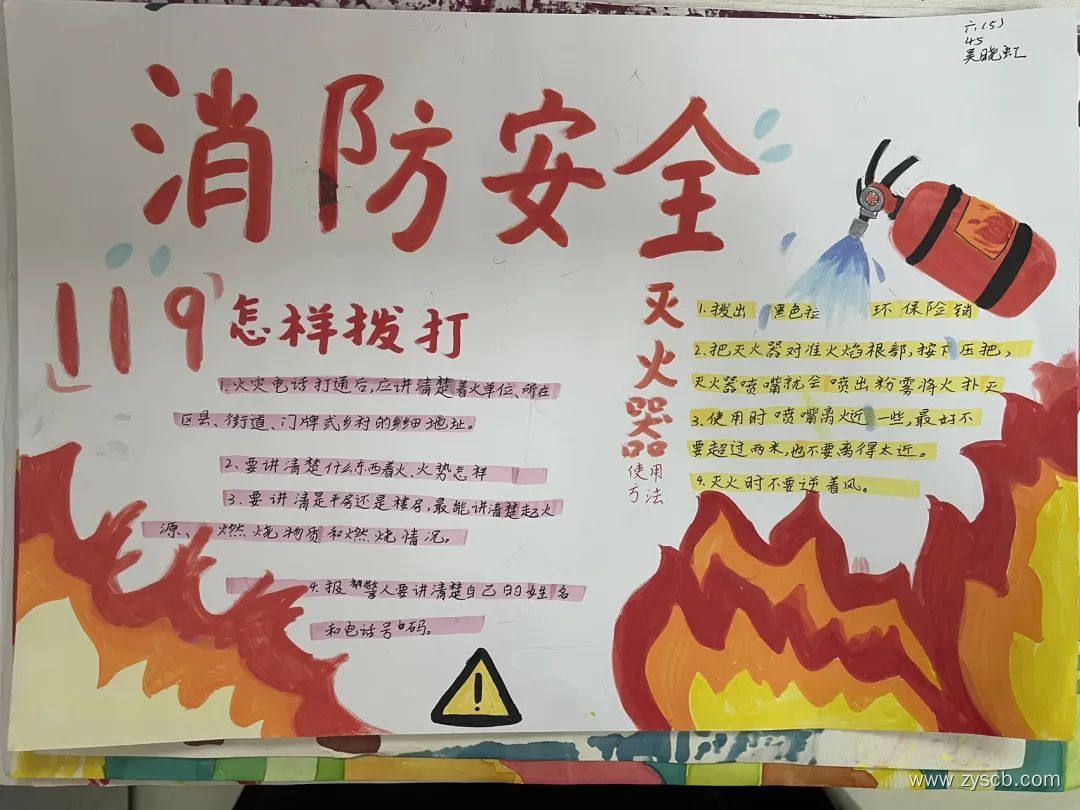 六(5)
45
吴晓虹
消防安全
119怎样拨打
1.火灾电话打通后,应讲清楚着火单位、所在
区县、街道、门牌或乡村的详细地址。
2、要讲清楚什么东西着火、火势怎样
3、要讲清是平房还是楼房,最能讲清楚起火
源、燃烧物质和燃烧情况。
4.报警人要讲清楚自己的姓名
和电话号码。
灭火器
使用
方法
1.拨出 黑色拉 环保险销
2.把灭火器对准火焰根部,按下压把,
灭火器喷嘴就会喷出粉雾将火扑灭
3、使用时喷嘴离火近一些,最好不
要超过两米,也不要离得太近。
4.灭火时不要逆着风。
www.zyscb.com